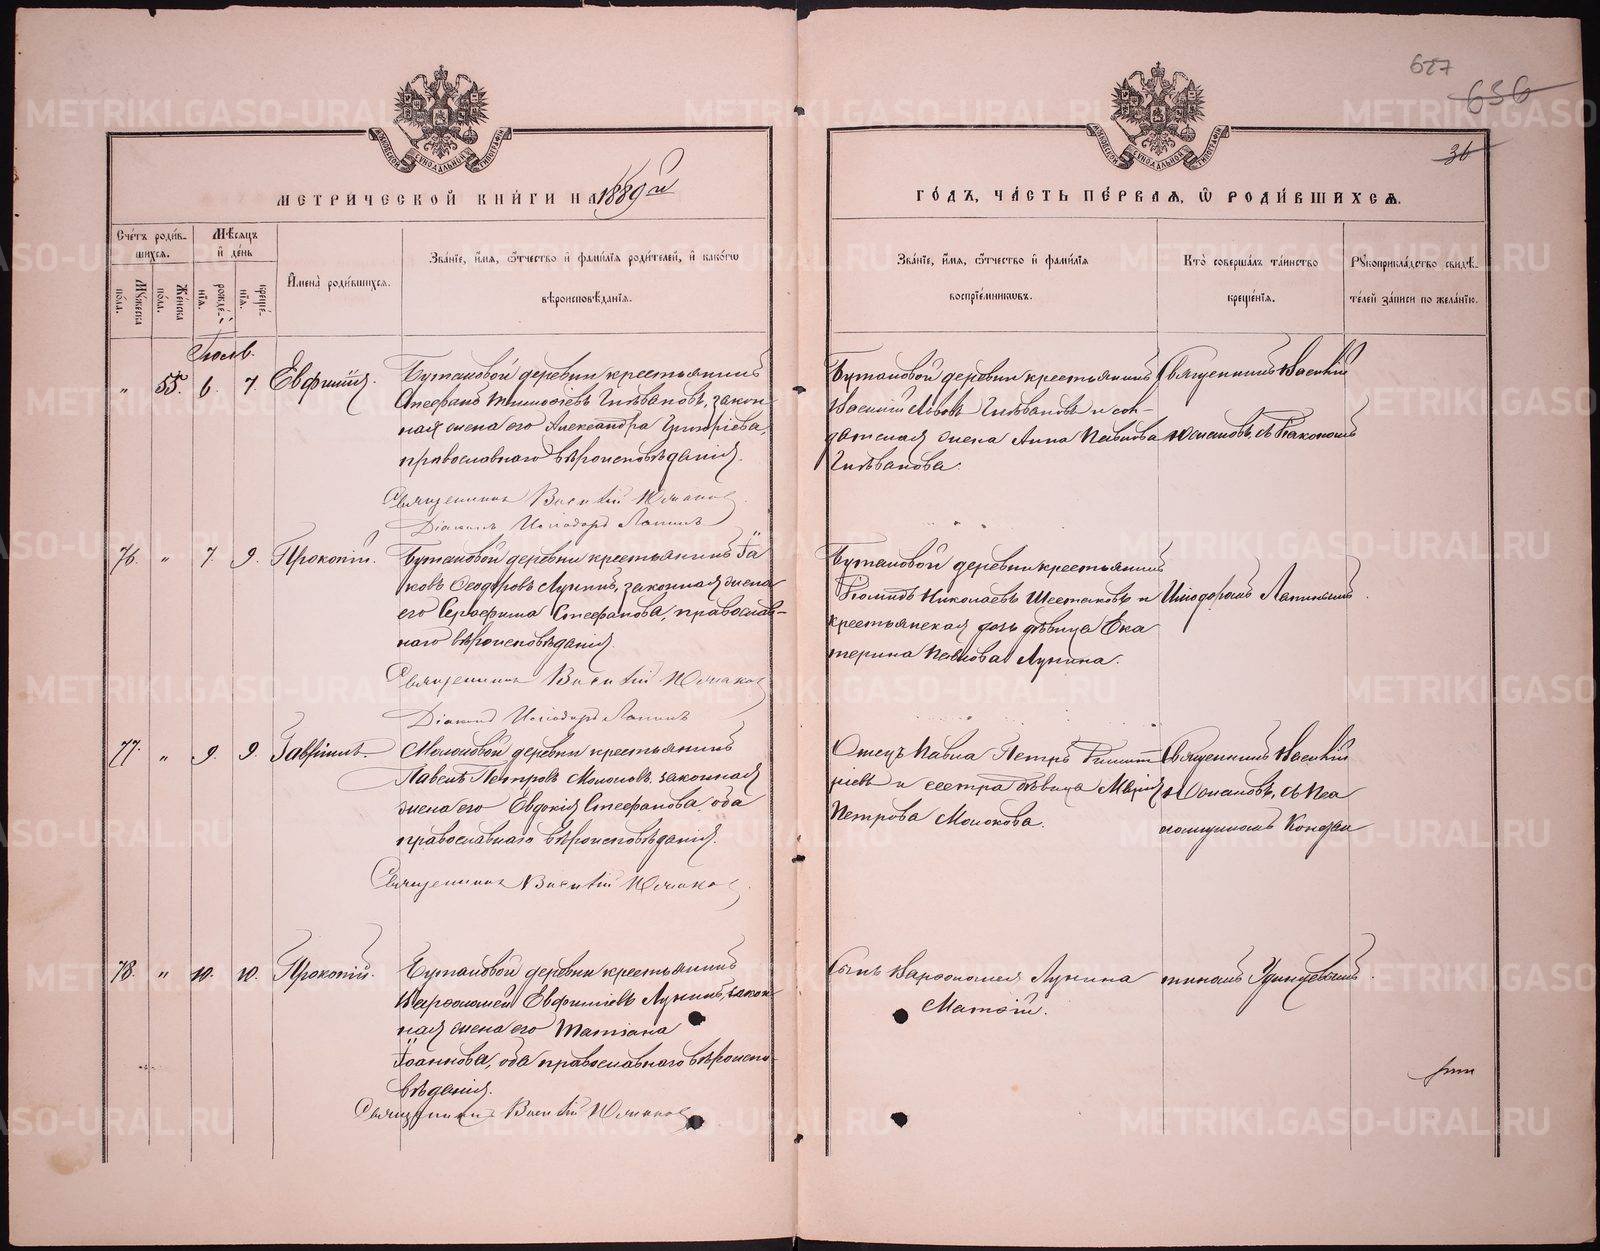 627
636
36
МЕТРИЧЕСКОЙ КНИГИ НА 1889й
ГОДЪ, ЧАСТЬ ПЕРВАЯ, Ѡ РОДИВШИХСЯ.
Счетъ родив-
шихся.
Мужеска
пола.
Женска
пола.
Мѣсяцъ
и день
рожде-
нія.
креще-
нія.
Имена родившихся.
Званіе, имя, ѿчество и фамилія родителей, и какогѡ
вѣроисповѣданія.
Званіе, имя, ѿчество и фамилія
воспріемниковъ.
Кто совершалъ таинство
крещенія.
Рукоприкладство свидѣ-
телей записи по желанію.
Іюль.
„ 55. 6. 7. Евфимія.
Бутаковой деревни крестьянинъ
Стефанъ Тимоѳеевъ Гилевановъ, закон-
ная жена его Александра Григоріева,
православнаго вѣроисповѣданія.
Священникъ Василій Юшаков
Діаконъ Исидоръ Лапинъ
Бутаковой деревни крестьянинъ
Василій Гилевановъ и сол-
датская жена Анна Павлова
Гилеванова.
Священникъ Василій
съ Діакономъ
76. „ 7. 9. Прокопій.
Бутаковой деревни крестьянинъ Іа
ковъ Ѳеодоровъ Лунинъ, законная жена
его Серафима Стефанова, православ-
наго вѣроисповѣданія.
Священникъ Василій Юшаков
Діаконъ Исидоръ Лапинъ
Бутаковой деревни крестьянинъ
Николаевъ Шестаковъ и
крестьянская дочь дѣвица Ека
терина Павлова Лунина.
Исидоромъ Лапинымъ.
77. „ 9. 9. Гавріилъ
Молоковой деревни крестьянинъ
Павелъ Петровъ Молоковъ, законная
жена его Евдокія Стефанова, оба
православнаго вѣроисповѣданія.
Священникъ Василій Юшаков
Отецъ Павла Петръ
ріевъ и сестра дѣвица Марія
Петрова Молокова.
Священникъ Василій
съ Пса
ломщикомъ Констан
78. „ 10. 10. Прокопій.
Бутаковой деревни крестьянинъ
Варѳоломей Евфиміевъ Лунинъ, закон
ная жена его Татіана
Іоаннова, оба православнаго вѣроиспо-
вѣданія.
Священникъ Василій Юшаков
Сынъ Варѳоломея Лунина
Матѳій.
тиномъ Удинцевымъ.